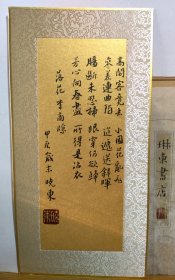 高閣客竟去 小園花亂飛
參差連曲陌 迢遞送斜暉
腸斷未忍掃 眼穿仍欲歸
芳心向春盡 所得是沾衣
落花 李商隱
甲辰歲末 曉東
琳東書店